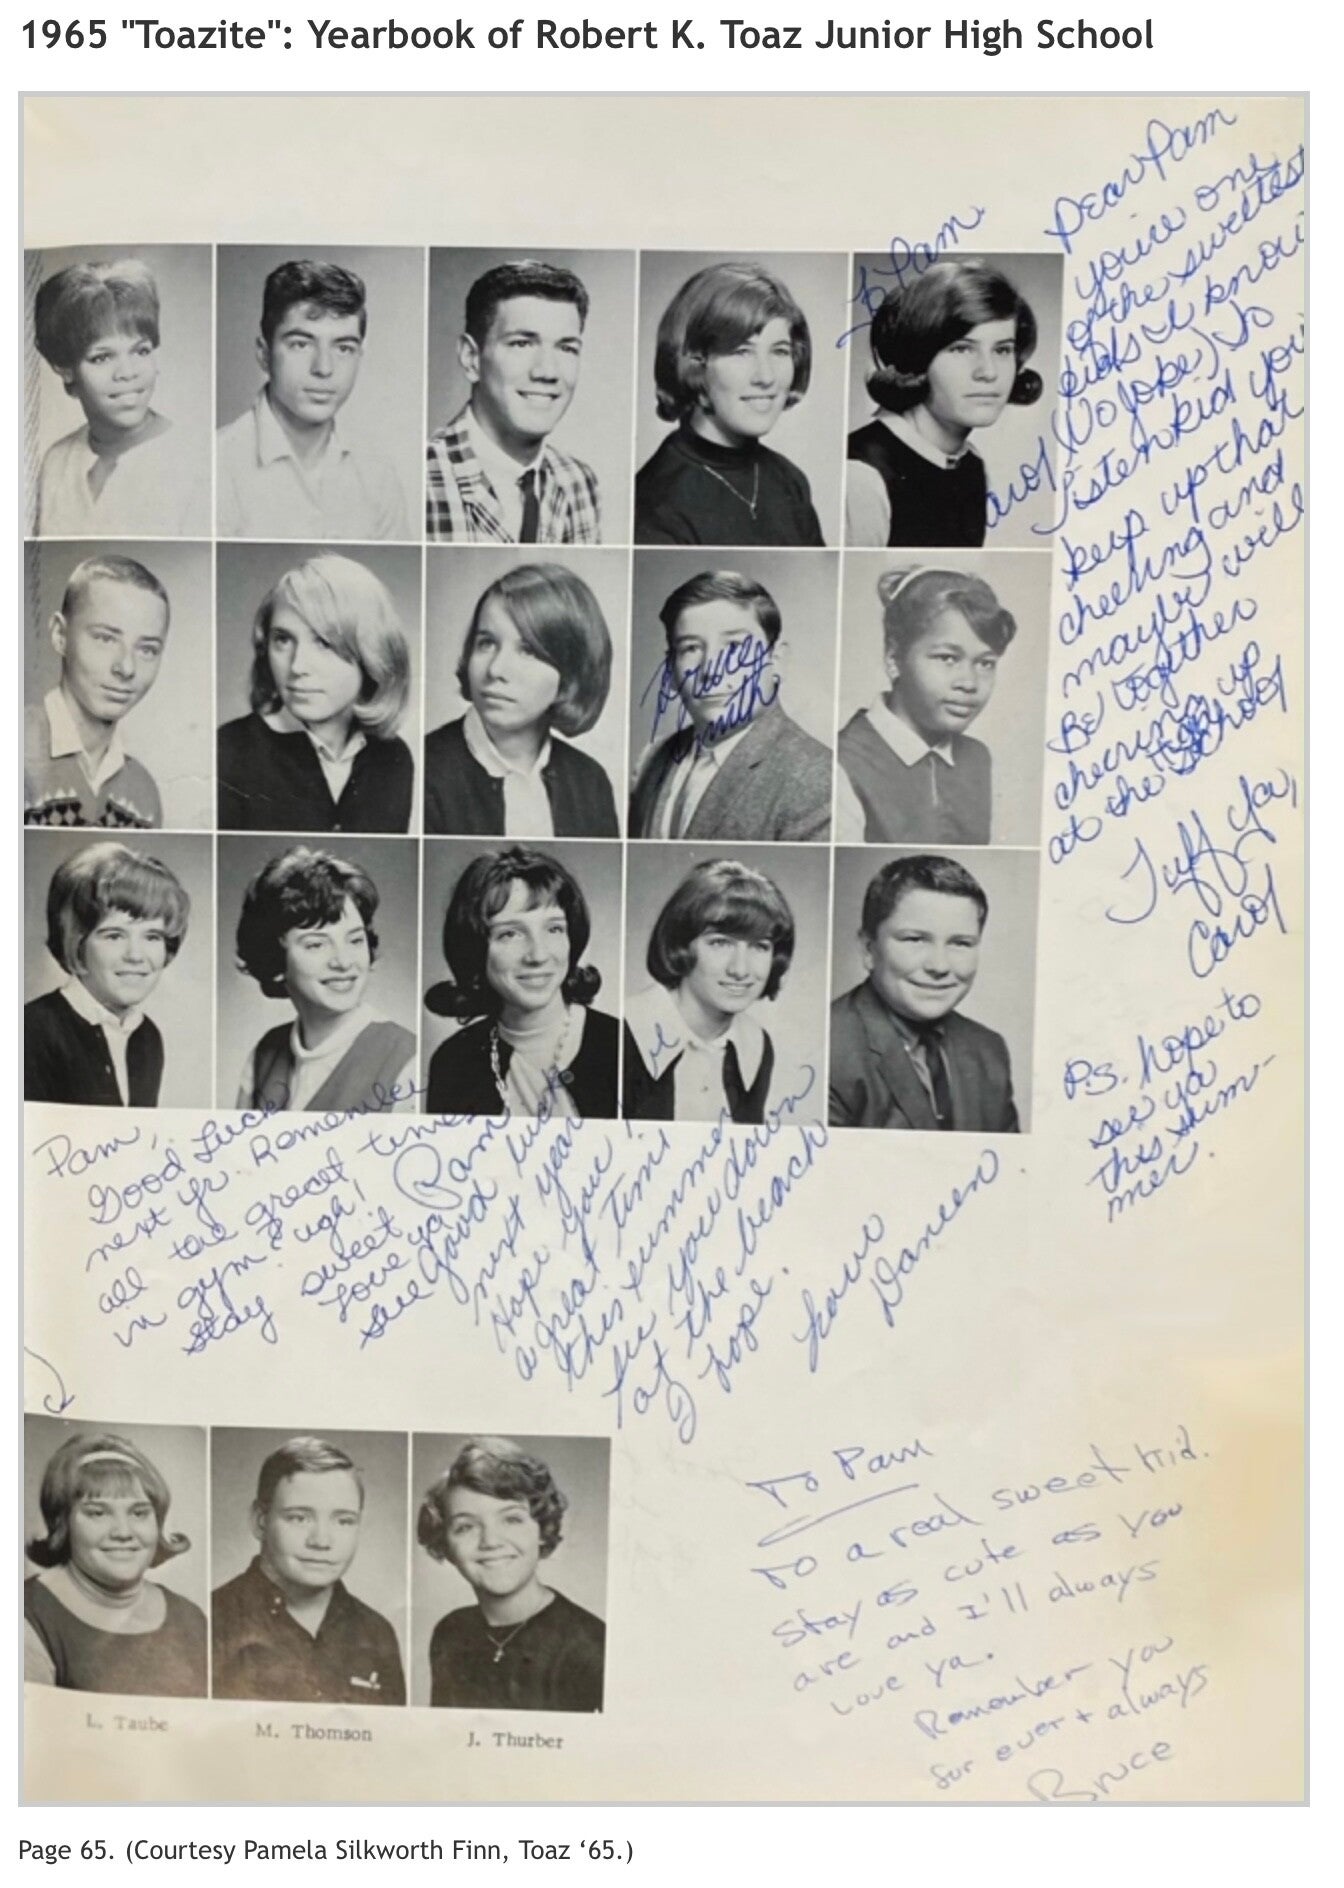 1965 "Toazite": Yearbook of Robert K. Toaz Junior High School
To Pam
Dear Pam
you're one
of the sweetest
kids I know
(No Joke) So
Listen kid you
keep up that
cheering and
maybe will
Be together
cheering up
at the school
Tuff Ya,
Carol
P.S. hope to
see ya
this sum-
mer.
Carol
Bruce
Smith
Pam,
Good Luck
next yr. Remember
all the great times
in gym? ugh!
Stay sweet
Love ya
Sue
Pam
Good luck
next year
Hope you have
a great time
this summer
See you down
at the beach
I hope.
Love
Doreen
To Pam
To a real sweet kid.
Stay as cute as you
are and I'll always
Love ya.
Remember you
for ever + always
Bruce
L. Taube
M. Thomson
J. Thurber
Page 65. (Courtesy Pamela Silkworth Finn, Toaz ‘65.)